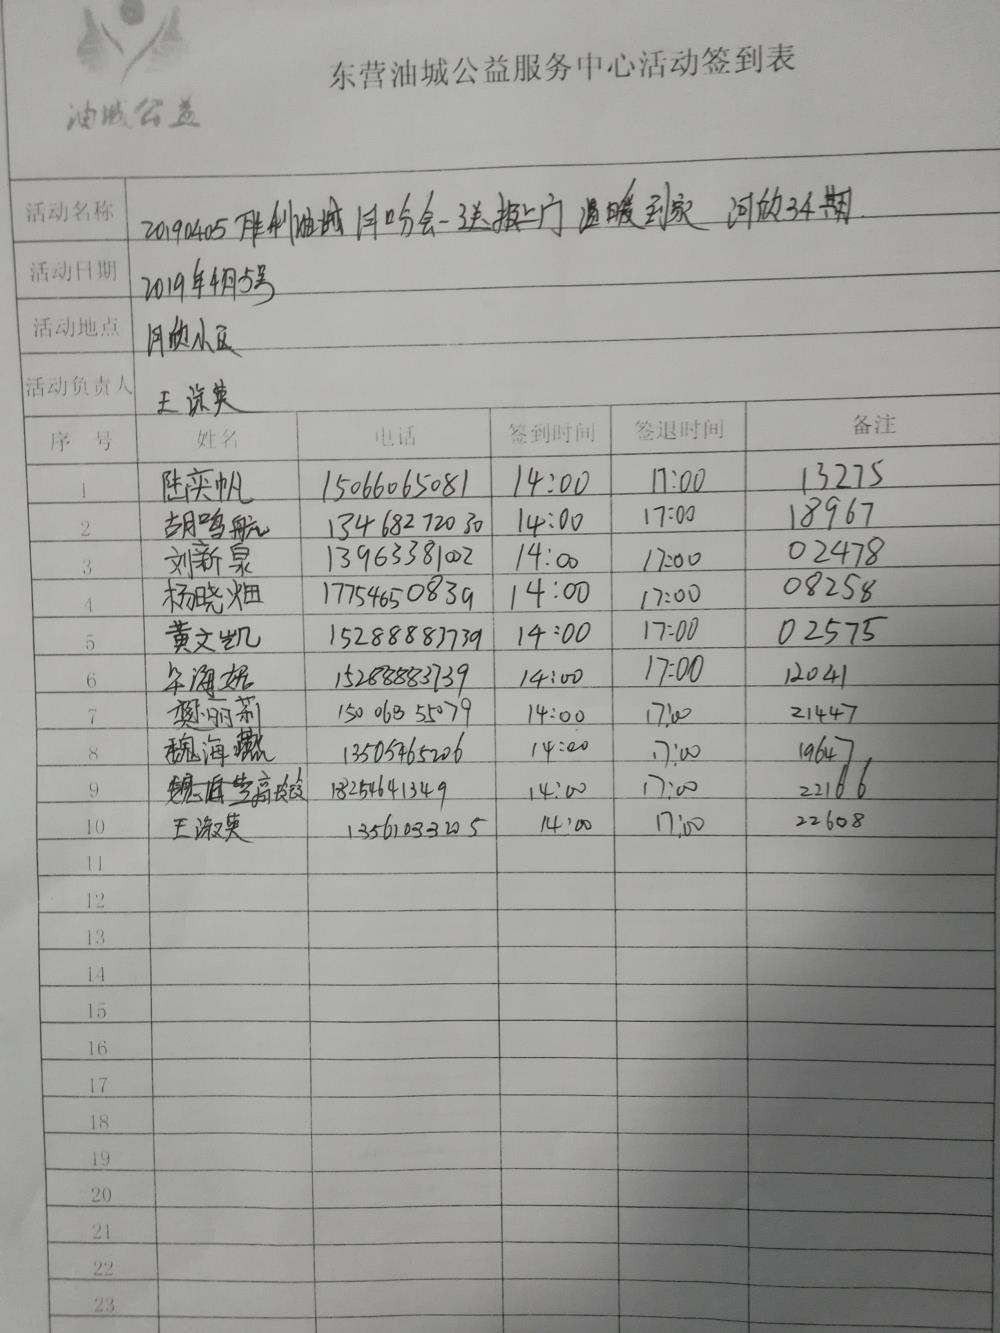 油城公益
东营油城公益服务中心活动签到表
活动名称 20190405 胜利油城河口分会-送报上门 温暖到家 河欣34期.
活动日期 2019年4月5号
活动地点 河欣小区
活动负责人 王淑英
序 号 姓名 电话 签到时间 签退时间 备注
1 陆奕帆 15066065081 14:00 17:00 13275
2 胡鸣航 13468272030 14:00 17:00 18967
3 刘新泉 13963381002 14:00 17:00 02478
4 杨晓畑 17754650839 14:00 17:00 08258
5 黄文凯 15288883739 14:00 17:00 02575
6 海妮 15288883739 14:00 17:00 12041
7 樊丽莉 15006355079 14:00 17:00 21447
8 魏海燕 13505465206 14:00 17:00 19647
9 高姣姣 18254641349 14:00 17:00 22166
10 王淑英 13561033205 14:00 17:00 22608
11
12
13
14
15
16
17
18
19
20
21
22
23